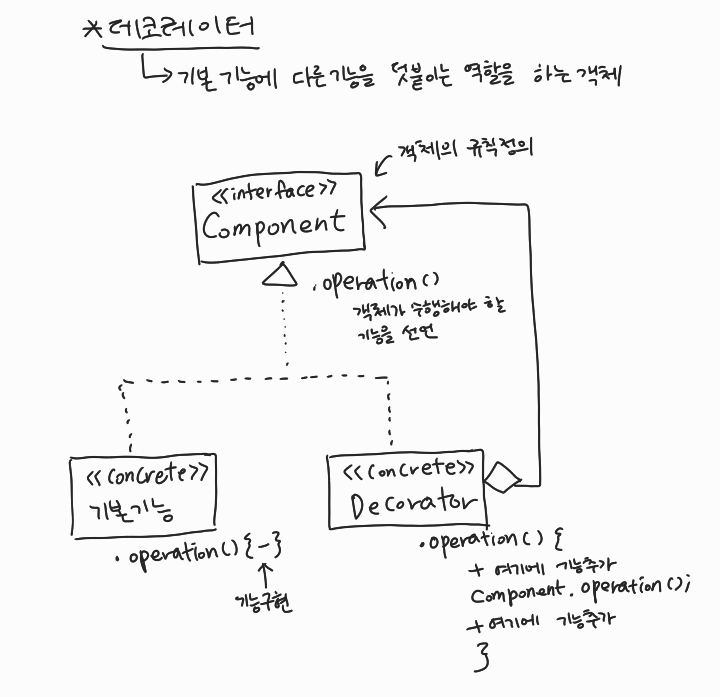 *데코레이터
기본기능에 다른기능을 덧붙이는 역할을 하는객체
객체의 규칙정의
<<interface>>
Component
.operation()
객체가 수행해야 할
기능을 선언
<<concrete>>
기본기능
.operation(){-}
기능구현
<<concrete>>
Decorator
.operation() {
+ 여기에 기능추가
Component.operation();
+여기에 기능추가
}